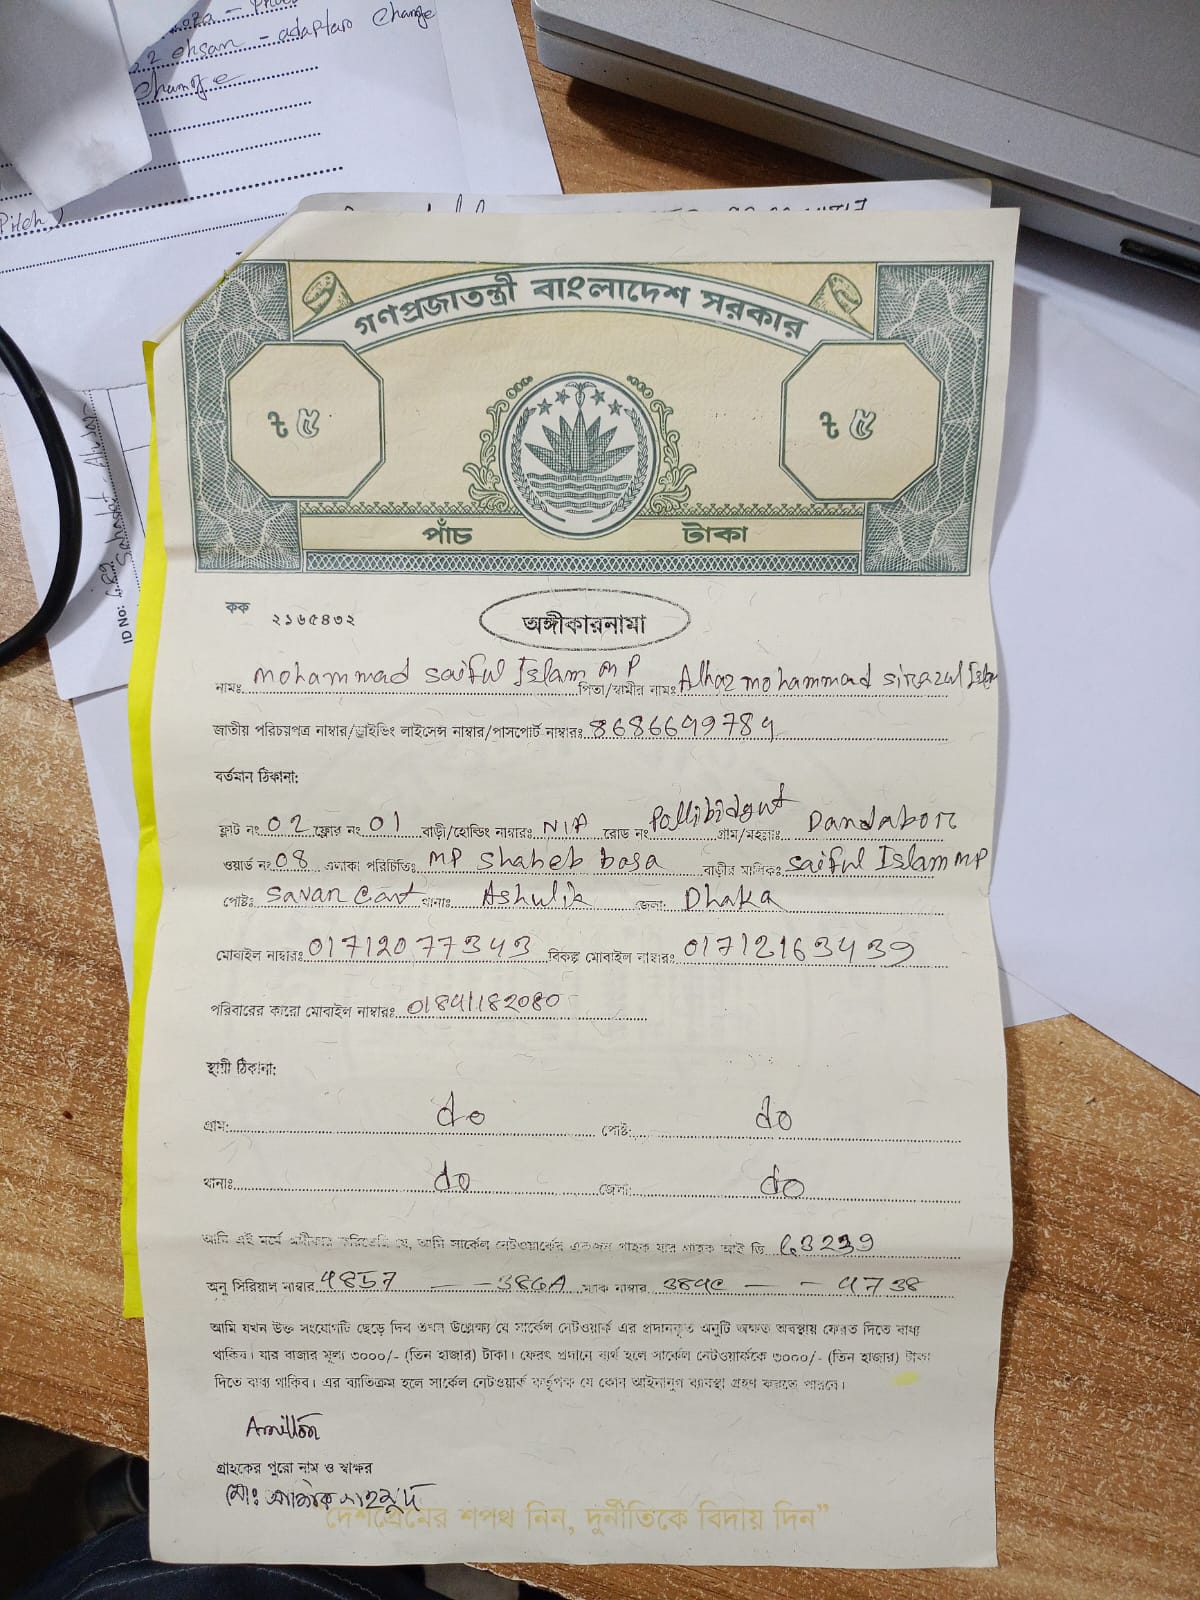 ehsan - adaptaro change
change
ID NO:
গণপ্রজাতন্ত্রী বাংলাদেশ সরকার
৳ ৫ ৳ ৫
পাঁচ টাকা
কক ২১৬৫৪৩২
অঙ্গীকারনামা
নামঃ mohammad saiful Islam MP পিতা/স্বামীর নামঃ Alhaz mohammad sirazul Islam
জাতীয় পরিচয়পত্র নাম্বার/ড্রাইভিং লাইসেন্স নাম্বার/পাসপোর্ট নাম্বারঃ 8686699789
বর্তমান ঠিকানা:
ফ্লাট নং 02 ফ্লোর নং 01 বাড়ী/হোল্ডিং নাম্বারঃ N/A রোড নং Pollibidyut গ্রাম/মহল্লাঃ Dandabor
ওয়ার্ড নং 08 এলাকা পরিচিতিঃ MP Shaheb basa বাড়ীর মালিকঃ Saiful Islam MP
পোষ্টঃ Savar Cant থানাঃ Ashulia জেলা: Dhaka
মোবাইল নাম্বারঃ 01712077343 বিকল্প মোবাইল নাম্বারঃ 01712163439
পরিবারের কারো মোবাইল নাম্বারঃ 01841182080
স্থায়ী ঠিকানা:
গ্রাম: do পোষ্ট: do
থানাঃ do জেলা: do
আমি এই মর্মে অঙ্গীকার করিতেছি যে, আমি সার্কেল নেটওয়ার্কের একজন গ্রাহক যার গ্রাহক আই ডি 63239
অনু সিরিয়াল নাম্বার 4857 — — 386A ম্যাক নাম্বার 389C — — 4738
আমি যখন উক্ত সংযোগটি ছেড়ে দিব তখন উল্লেখ্য যে সার্কেল নেটওয়ার্ক এর প্রদানকৃত অনুটি অক্ষত অবস্থায় ফেরত দিতে বাধ্য
থাকিব। যার বাজার মূল্য ৩০০০/- (তিন হাজার) টাকা। ফেরৎ প্রদানে ব্যর্থ হলে সার্কেল নেটওয়ার্ককে ৩০০০/- (তিন হাজার) টাকা
দিতে বাধ্য থাকিব। এর ব্যতিক্রম হলে সার্কেল নেটওয়ার্ক কর্তৃপক্ষ যে কোন আইনানুগ ব্যবস্থা গ্রহণ করতে পারবে।
গ্রাহকের পুরো নাম ও স্বাক্ষর
মোঃ মাহমুদ
"দেশপ্রেমের শপথ নিন, দুর্নীতিকে বিদায় দিন"